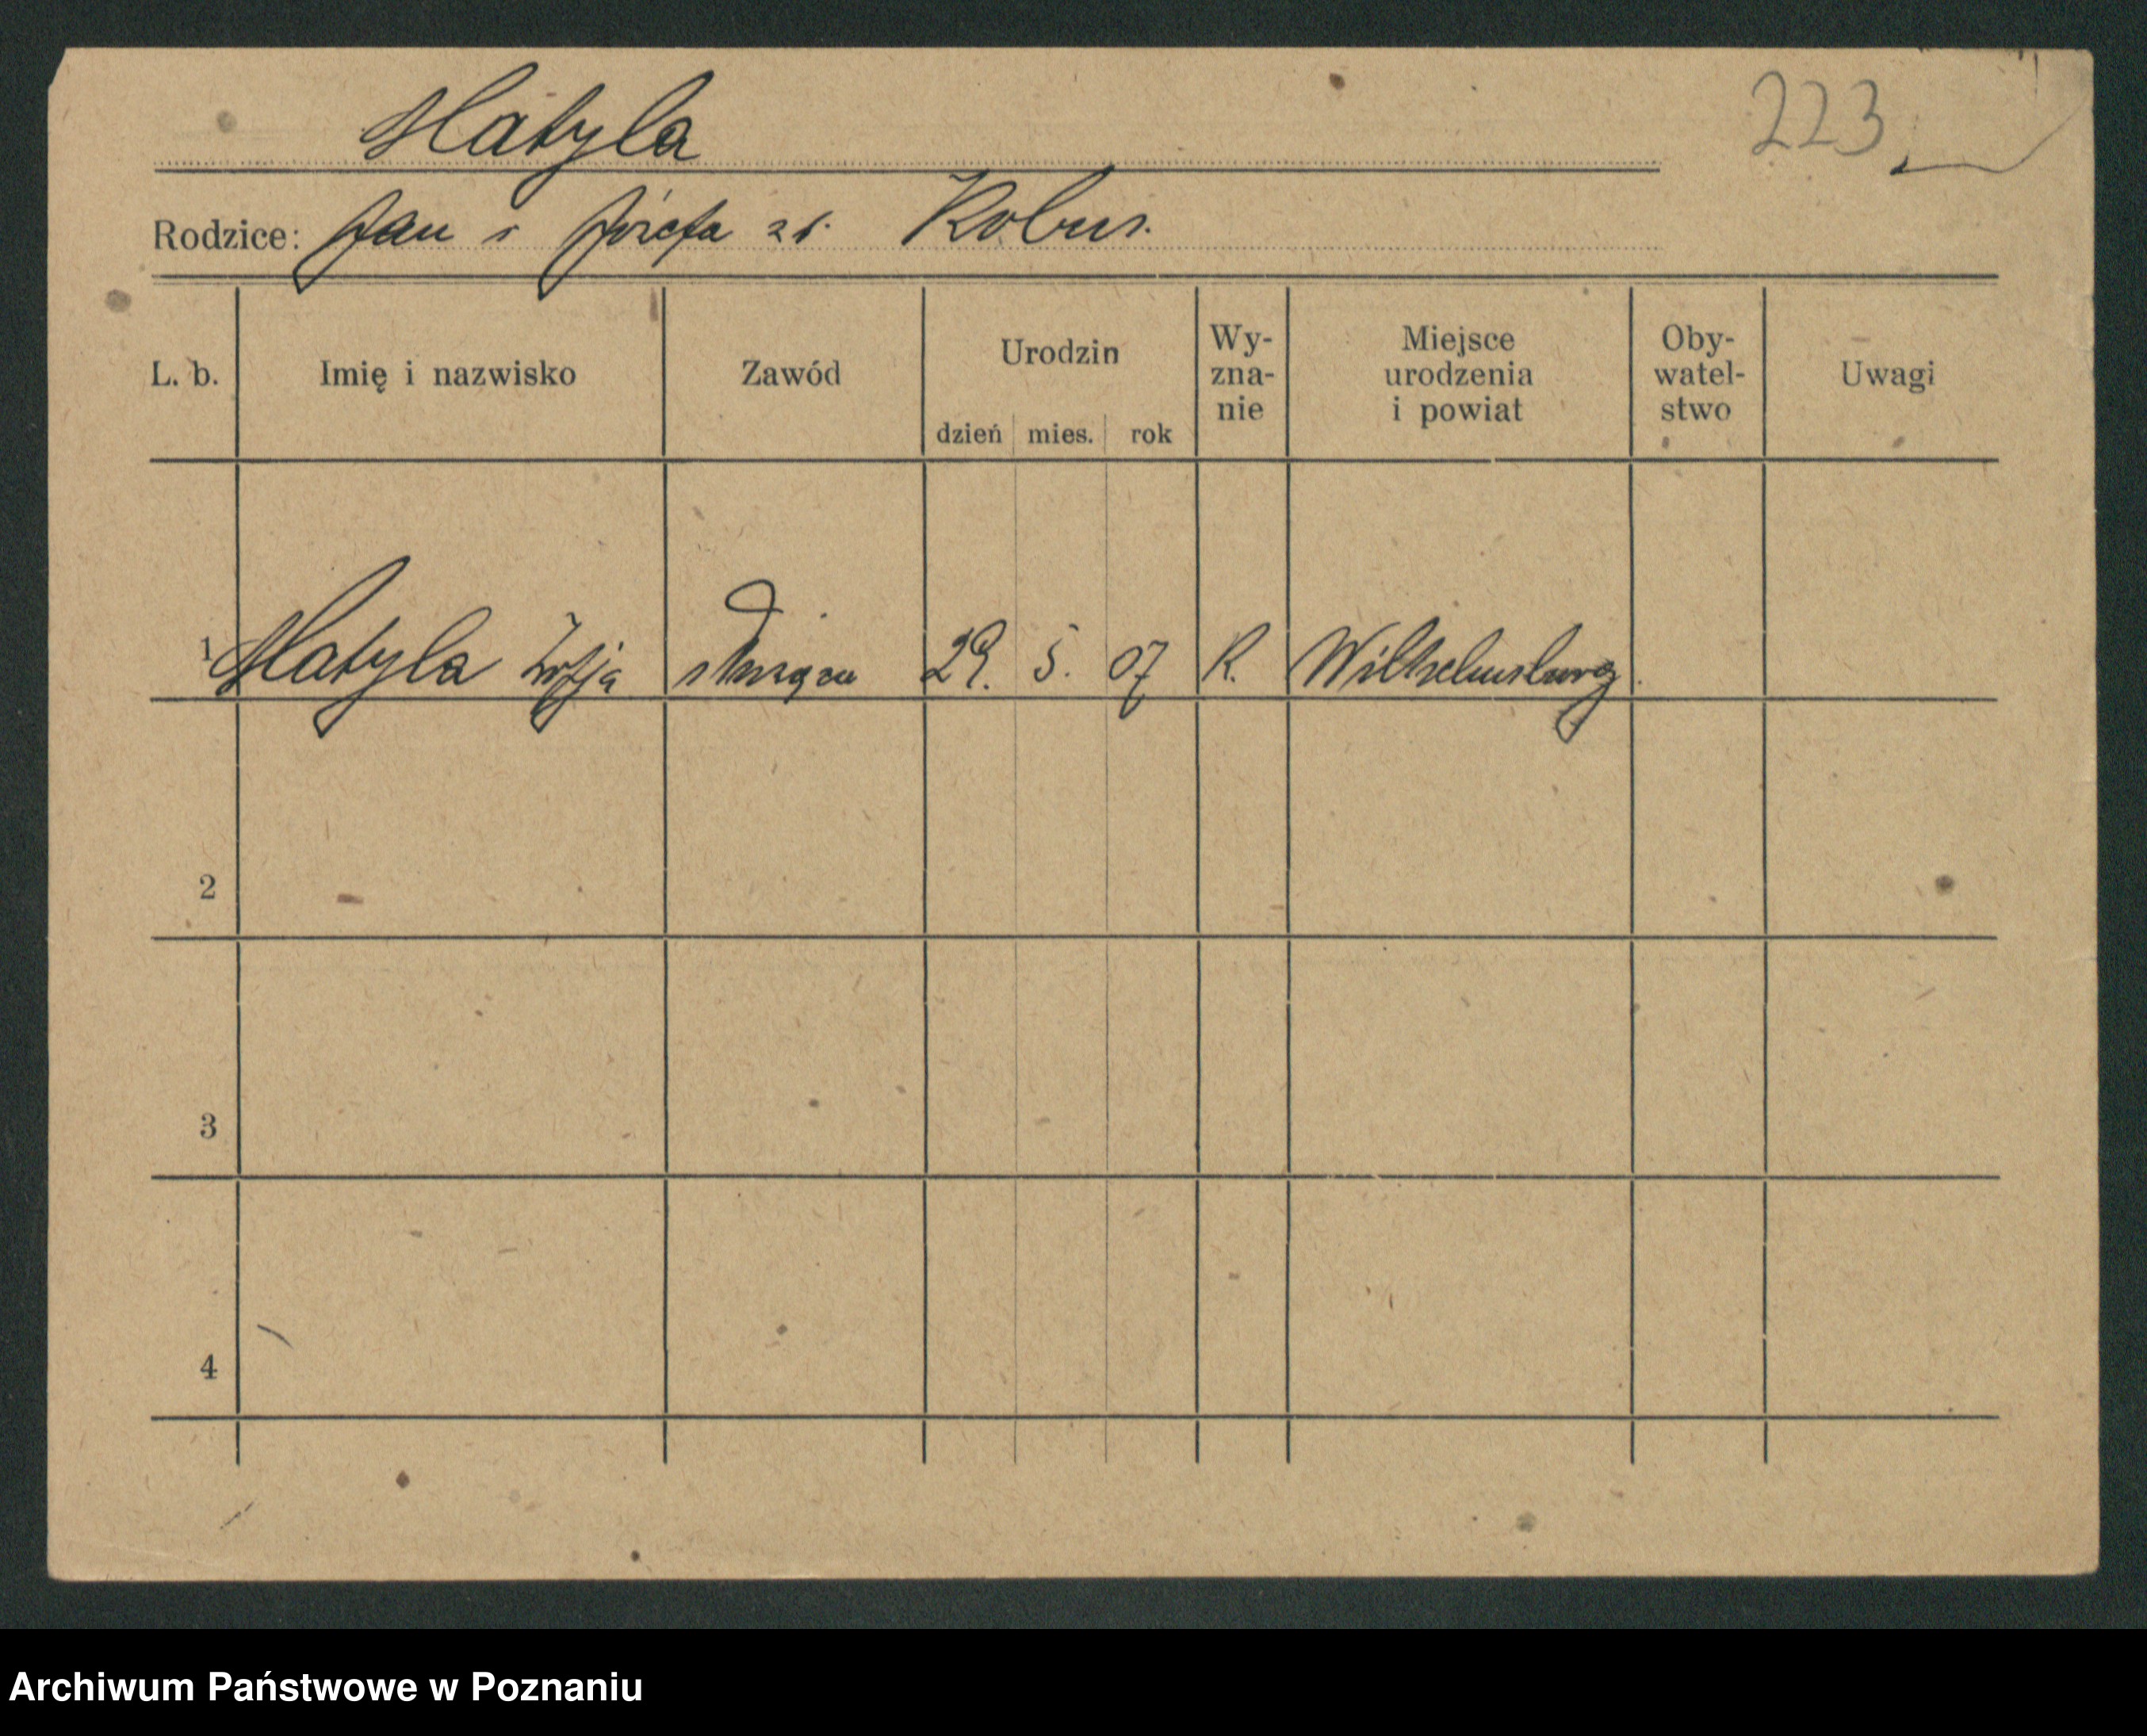 223
Matyla
Rodzice: Jan i Józefa zd. Kobus.
L. b. Imię i nazwisko Zawód Urodzin dzień mies. rok Wy-zna-nie Miejsce urodzenia i powiat Oby-watel-stwo Uwagi
1 Matyla Zofja 29. 5. 07 K. Wilhelmsburg.
2
3
4
Archiwum Państwowe w Poznaniu